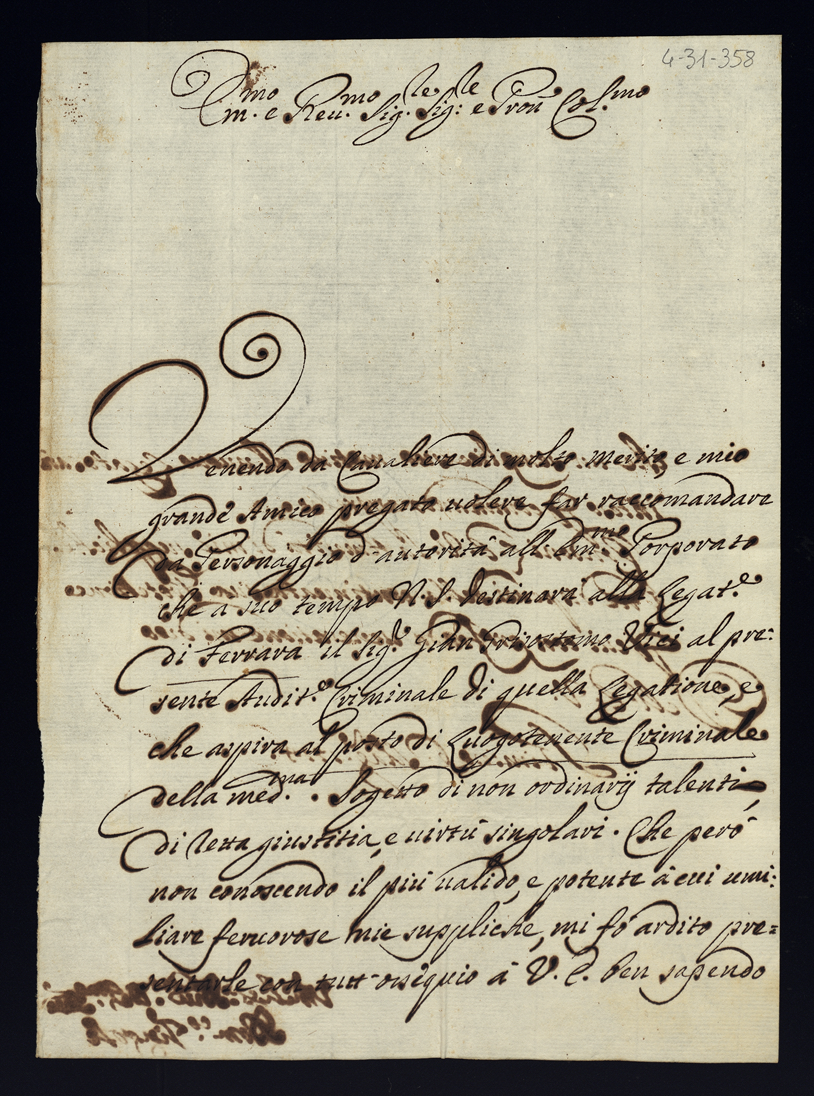 4-31-358
Em.mo e Reu.mo Sig.re Sig:re e Pron Col.mo
Venendo da Caualiere di molto merito, e mio
grande Amico pregato uolere far raccomandare
da Personaggio d'autorità all'Em.mo Porporato
che a suo tempo N. S. destinarà alla Legat.e
di Ferrara il Sig.r Gian Grisostomo Vici al pre:
sente Audit.e Criminale di quella Legatione, e
che aspira al posto di Luogotenente Criminale
della med.ma. Sogetto di non ordinarij talenti,
di retta giustitia, e uirtù singolari. Che però
non conoscendo il più ualido, e potente à cui umi:
liare feruorose mie suppliche, mi fò ardito pre=
sentarle con tutt'ossequio à V. E. ben sapendo